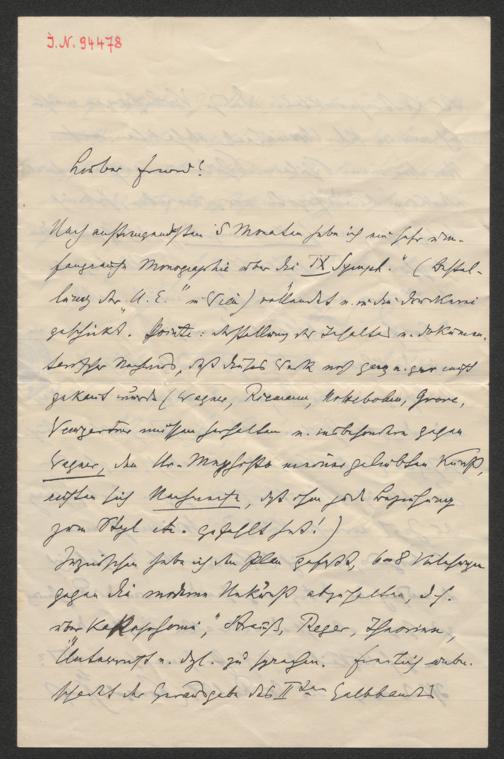 I.N. 94478
Lieber Freund!
Nach anstrengendsten 5 Monaten habe ich eine sehr um-
fangreiche Monographie über die IX Symph." (Bestel-
lung der „U. E." in Wien) vollendet u. in die Druckerei
geschickt. Pointe: Darstellung des Inhaltes u. dokumen-
tarischer Nachweis, daß dieses Werk noch ganz u. gar nicht
gekannt wurde (Wagner, Riemann, Nottebohm, Grove,
Weingartner müssen herhalten u. insbesondere gegen
Wagner, den Ur-Mephisto meiner geliebten Kunst,
richten sich Nachweise, daß ohne jede Beziehung
zum Styl etc. gefehlt hat!)
Inzwischen habe ich den Plan gefaßt, 6–8 Vorlesungen
gegen die moderne Unkunst abzuhalten, d. h.
über Kakophonie," Strauß, Reger, Theorien,
Unterricht u. dgl. zu sprechen. Freilich unbe-
schadet der Herausgabe des II ten Halbbandes